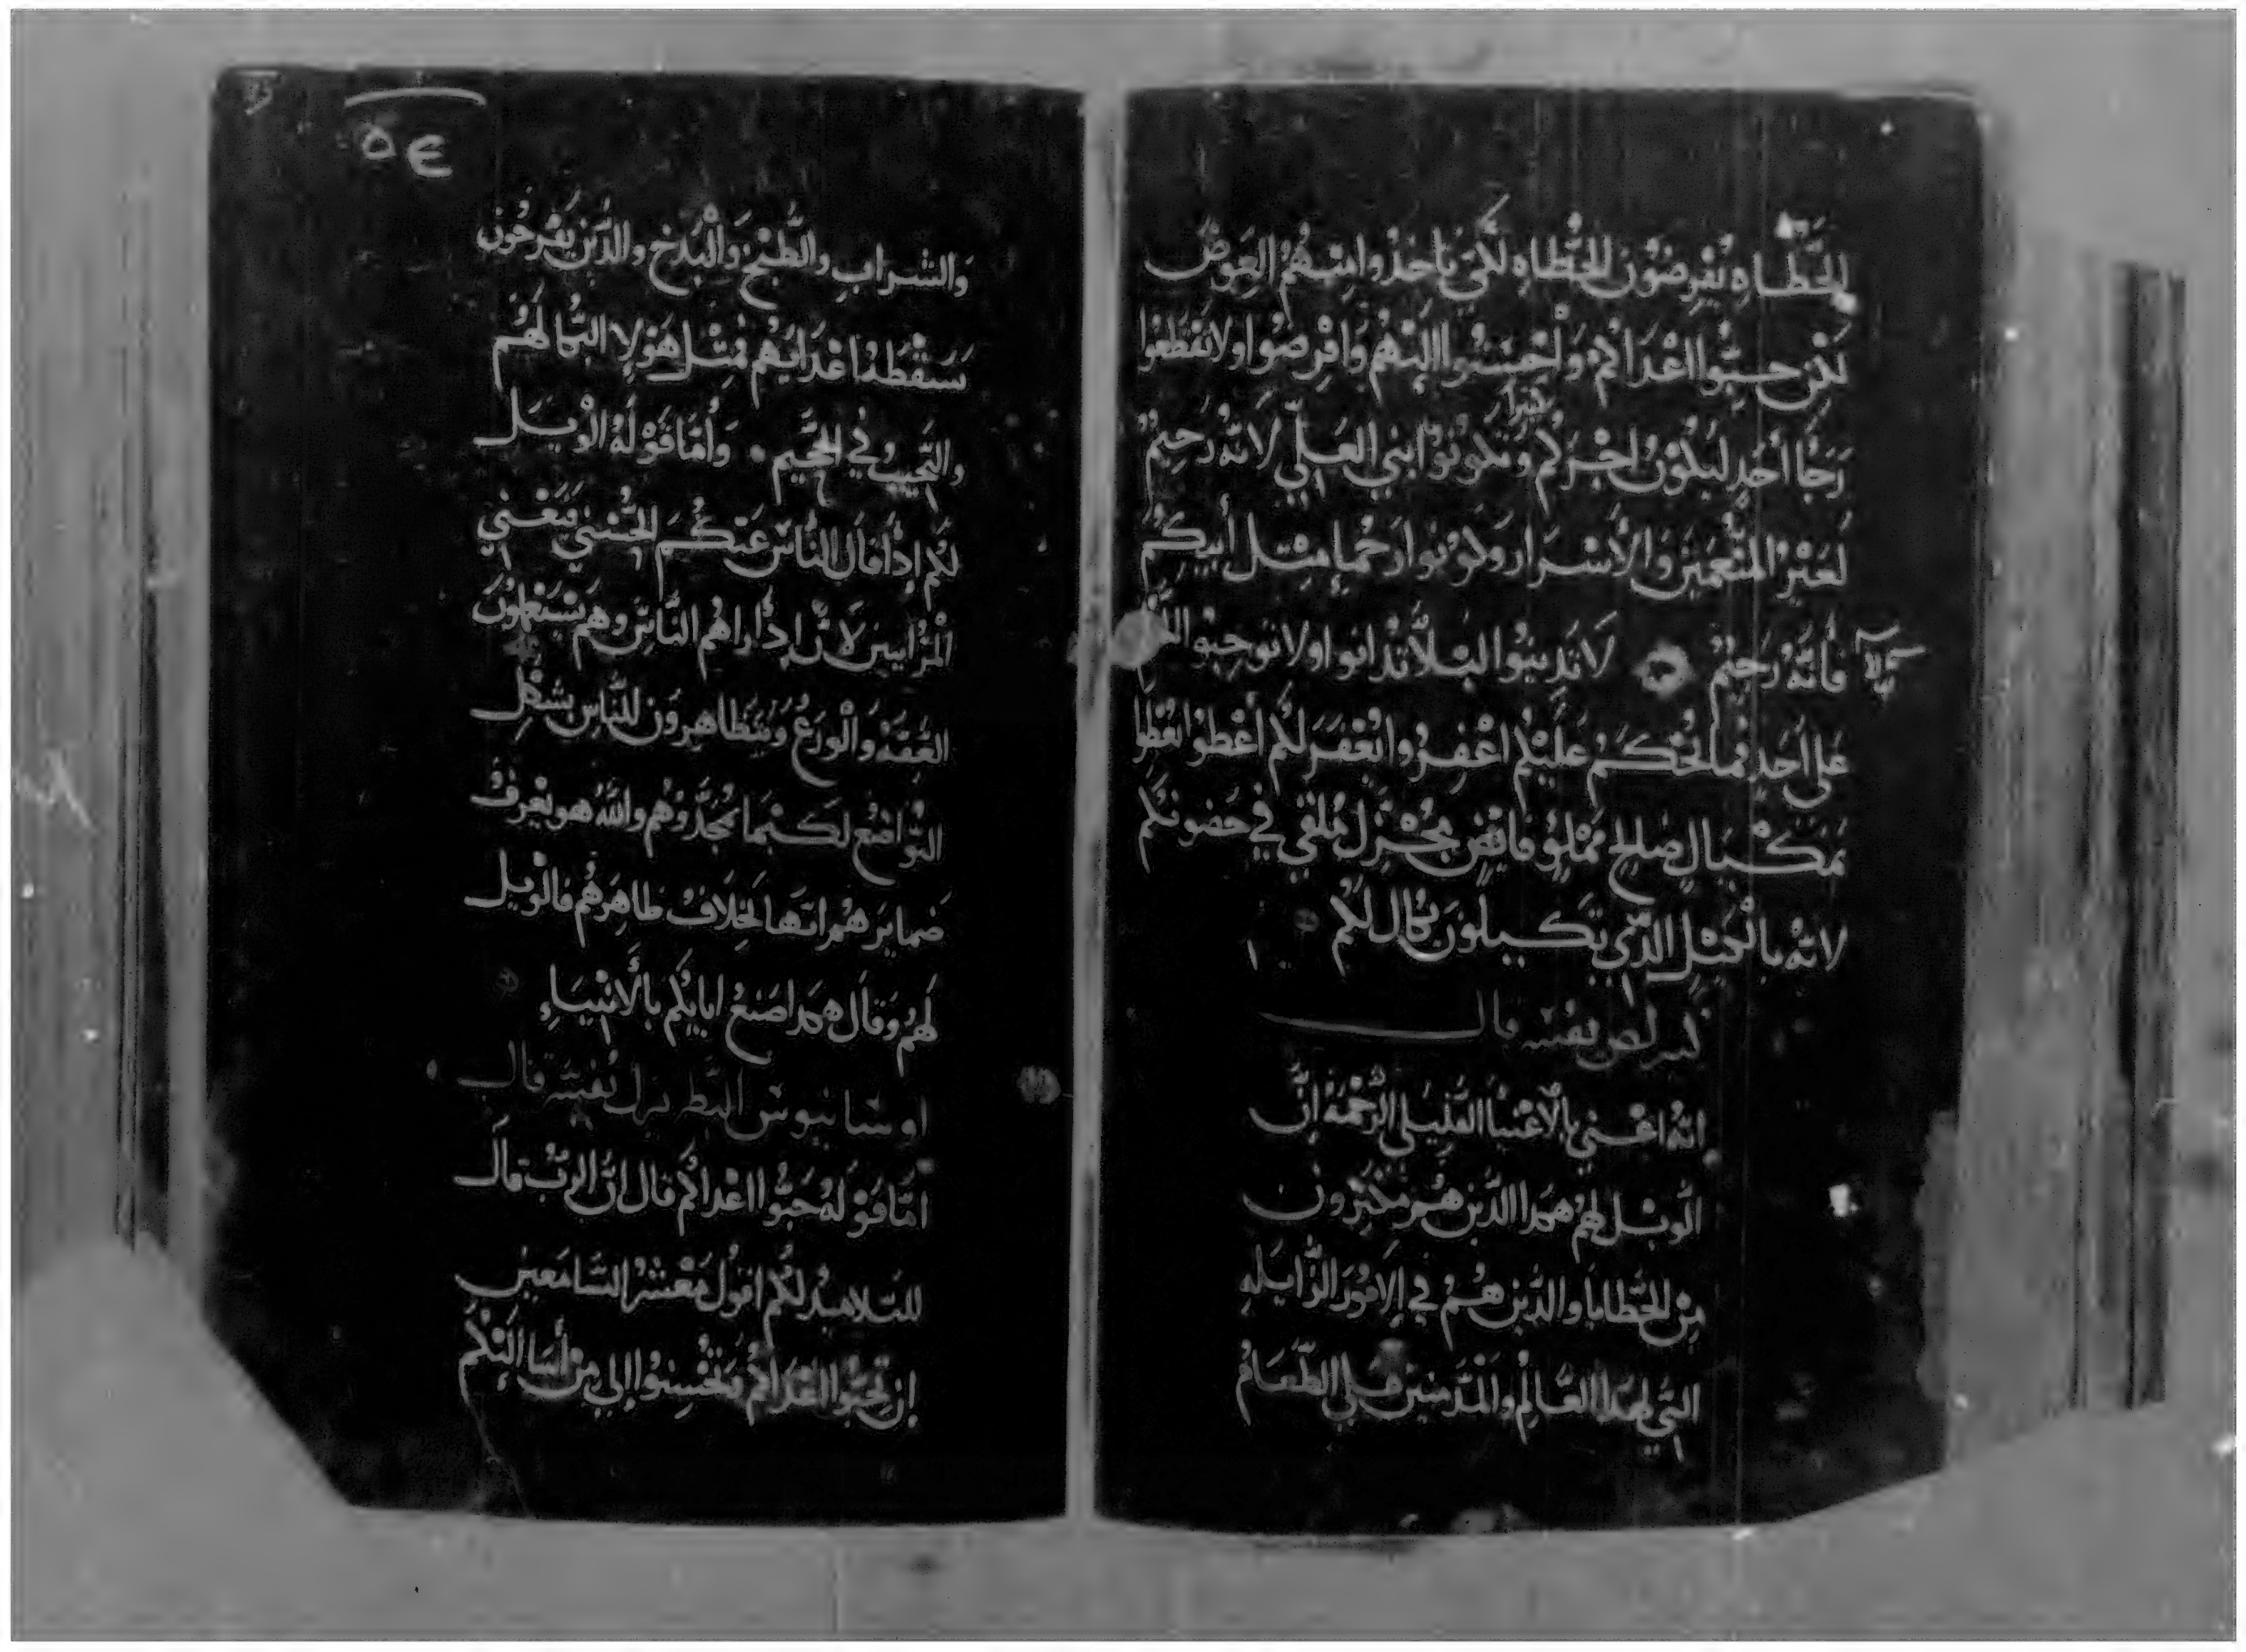 الخطاه يقرضون الخطاه لكي ياخذوا منهم العوض
لكن حبوا اعداكم وأحسنوا اليهم واقرضوا ولا تقطعوا
رجا أحد ليكون اجركم وتكونوا بني العلي لانه رحيم
كثيرا
المنعمين والأشرار وكونوا رحما مثل أبيكم
فأنه رحيم لا تدينوا ليلا تدانوا ولا توجبوا
على أحد فما يحكم عليكم اغفروا يغفر لكم أعطوا تعطوا
بمكيال صالح مملو فايض ملقى في حضونكم
لانه بالكيل الذي تكيلون يكال لكم
تفسير قال
انه اعني بالأغنيا القليلي الرحمة ان
الويل لهم هم الذين هم
من الخطايا والذين هم في الامور الزايله
التي لهذا العالم والمدمنين على الطعام
ⲟⲉ
والشراب والطبخ والبذخ والذين يفرحون
بسقطة اعدايهم فمثل هولا البكا لهم
والنحيب في الجحيم وأما قوله الويل
لكم إذا قال الناس عنكم الحسنى يعني
المرايين لان إذا راهم الناس وهم يستعملون
العفه والورع ويتظاهرون للناس بشكل
التواضع لكيما يمجدوهم والله هو يعرف
ضمايرهم انها بخلاف ظاهرهم فالويل
لهم وقال هكذا صنع ابايكم بالأنبياء
اوسانيوس البطريرك تفسير قال
اما قوله حبوا اعداكم قال ان الرب قال
للتلاميذ لكم اقول معشر السامعين
ان تحبوا اعداكم وتحسنوا إلى من أسا اليكم